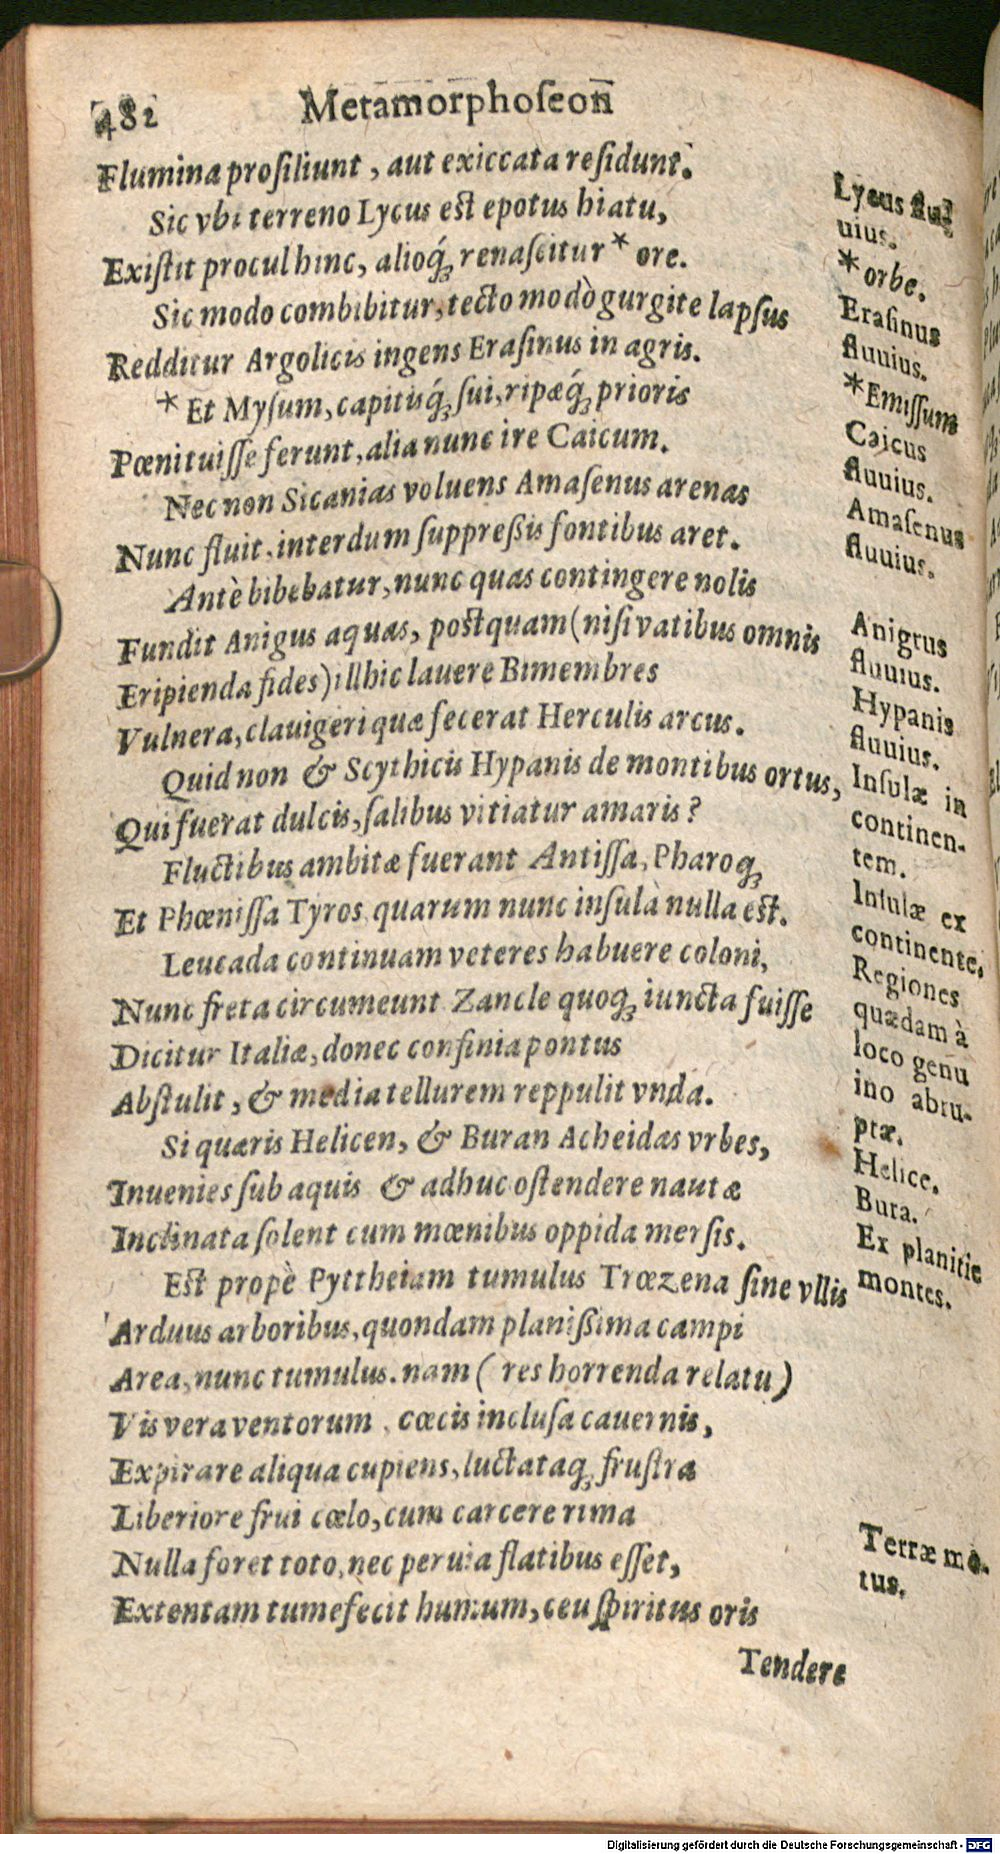 482
Metamorphoseon̄
Flumina prosiliunt, aut exiccata residunt.
Sic vbi terreno Lycus est epotus hiatu,
Existit procul hinc, alioq́ꝫ renascitur * ore.
Sic modo combibitur, tecto modò gurgite lapsus
Redditur Argolicis ingens Erasinus in agris.
* Et Mysum, capitisq́ꝫ sui, ripæq́ꝫ prioris
Pœnituisse ferunt, alia nunc ire Caicum.
Nec non Sicanias voluens Amasenus arenas
Nunc fluit, interdum suppreßis fontibus aret.
Antè bibebatur, nunc quas contingere nolis
Fundit Anigus aquas, postquam (nisi vatibus omnis
Eripienda fides) illhic lauere Bimembres
Vulnera, clauigeri quæ fecerat Herculis arcus.
Quid non & Scythicis Hypanis de montibus ortus,
Qui fuerat dulcis, salibus vitiatur amaris?
Fluctibus ambitæ fuerant Antissa, Pharoqꝫ
Et Phœnissa Tyros, quarum nunc insula nulla est.
Leucada continuam veteres habuere coloni,
Nunc freta circumeunt Zancle quoqꝫ iuncta fuisse
Dicitur Italiæ, donec confinia pontus
Abstulit, & media tellurem reppulit vnda.
Si quæris Helicen, & Buran Acheidas vrbes,
Inuenies sub aquis & adhuc ostendere nautæ
Inclinata solent cum mœnibus oppida mersis.
Est propè Pyttheiam tumulus Trœzena sine vllis
Arduus arboribus, quondam planißima campi
Area, nunc tumulus. nam ( res horrenda relatu)
Vis vera ventorum, cœcis inclusa cauernis,
Expirare aliqua cupiens, luctataqꝫ frustra
Liberiore frui cœlo, cum carcere rima
Nulla foret toto, nec peruia flatibus esset,
Extentam tumefècit humum, ceu spiritus oris
Tendere
Lycus flu
uius.
* orbe.
Erasinus
fluuius.
*Emissum
Caicus
fluuius.
Amasenus
fluuius.
Anigrus
fluuius.
Hypanis
fluuius.
Insulæ in
continen-
tem.
Insulæ ex
continente,
Regiones
quædam à
loco genu
ino abru-
ptæ.
Helice.
Bura.
Ex planitie
montes.
Terræ mo-
tus.
Digitalisierung gefördert durch die Deutsche Forschungsgemeinschaft - DFG